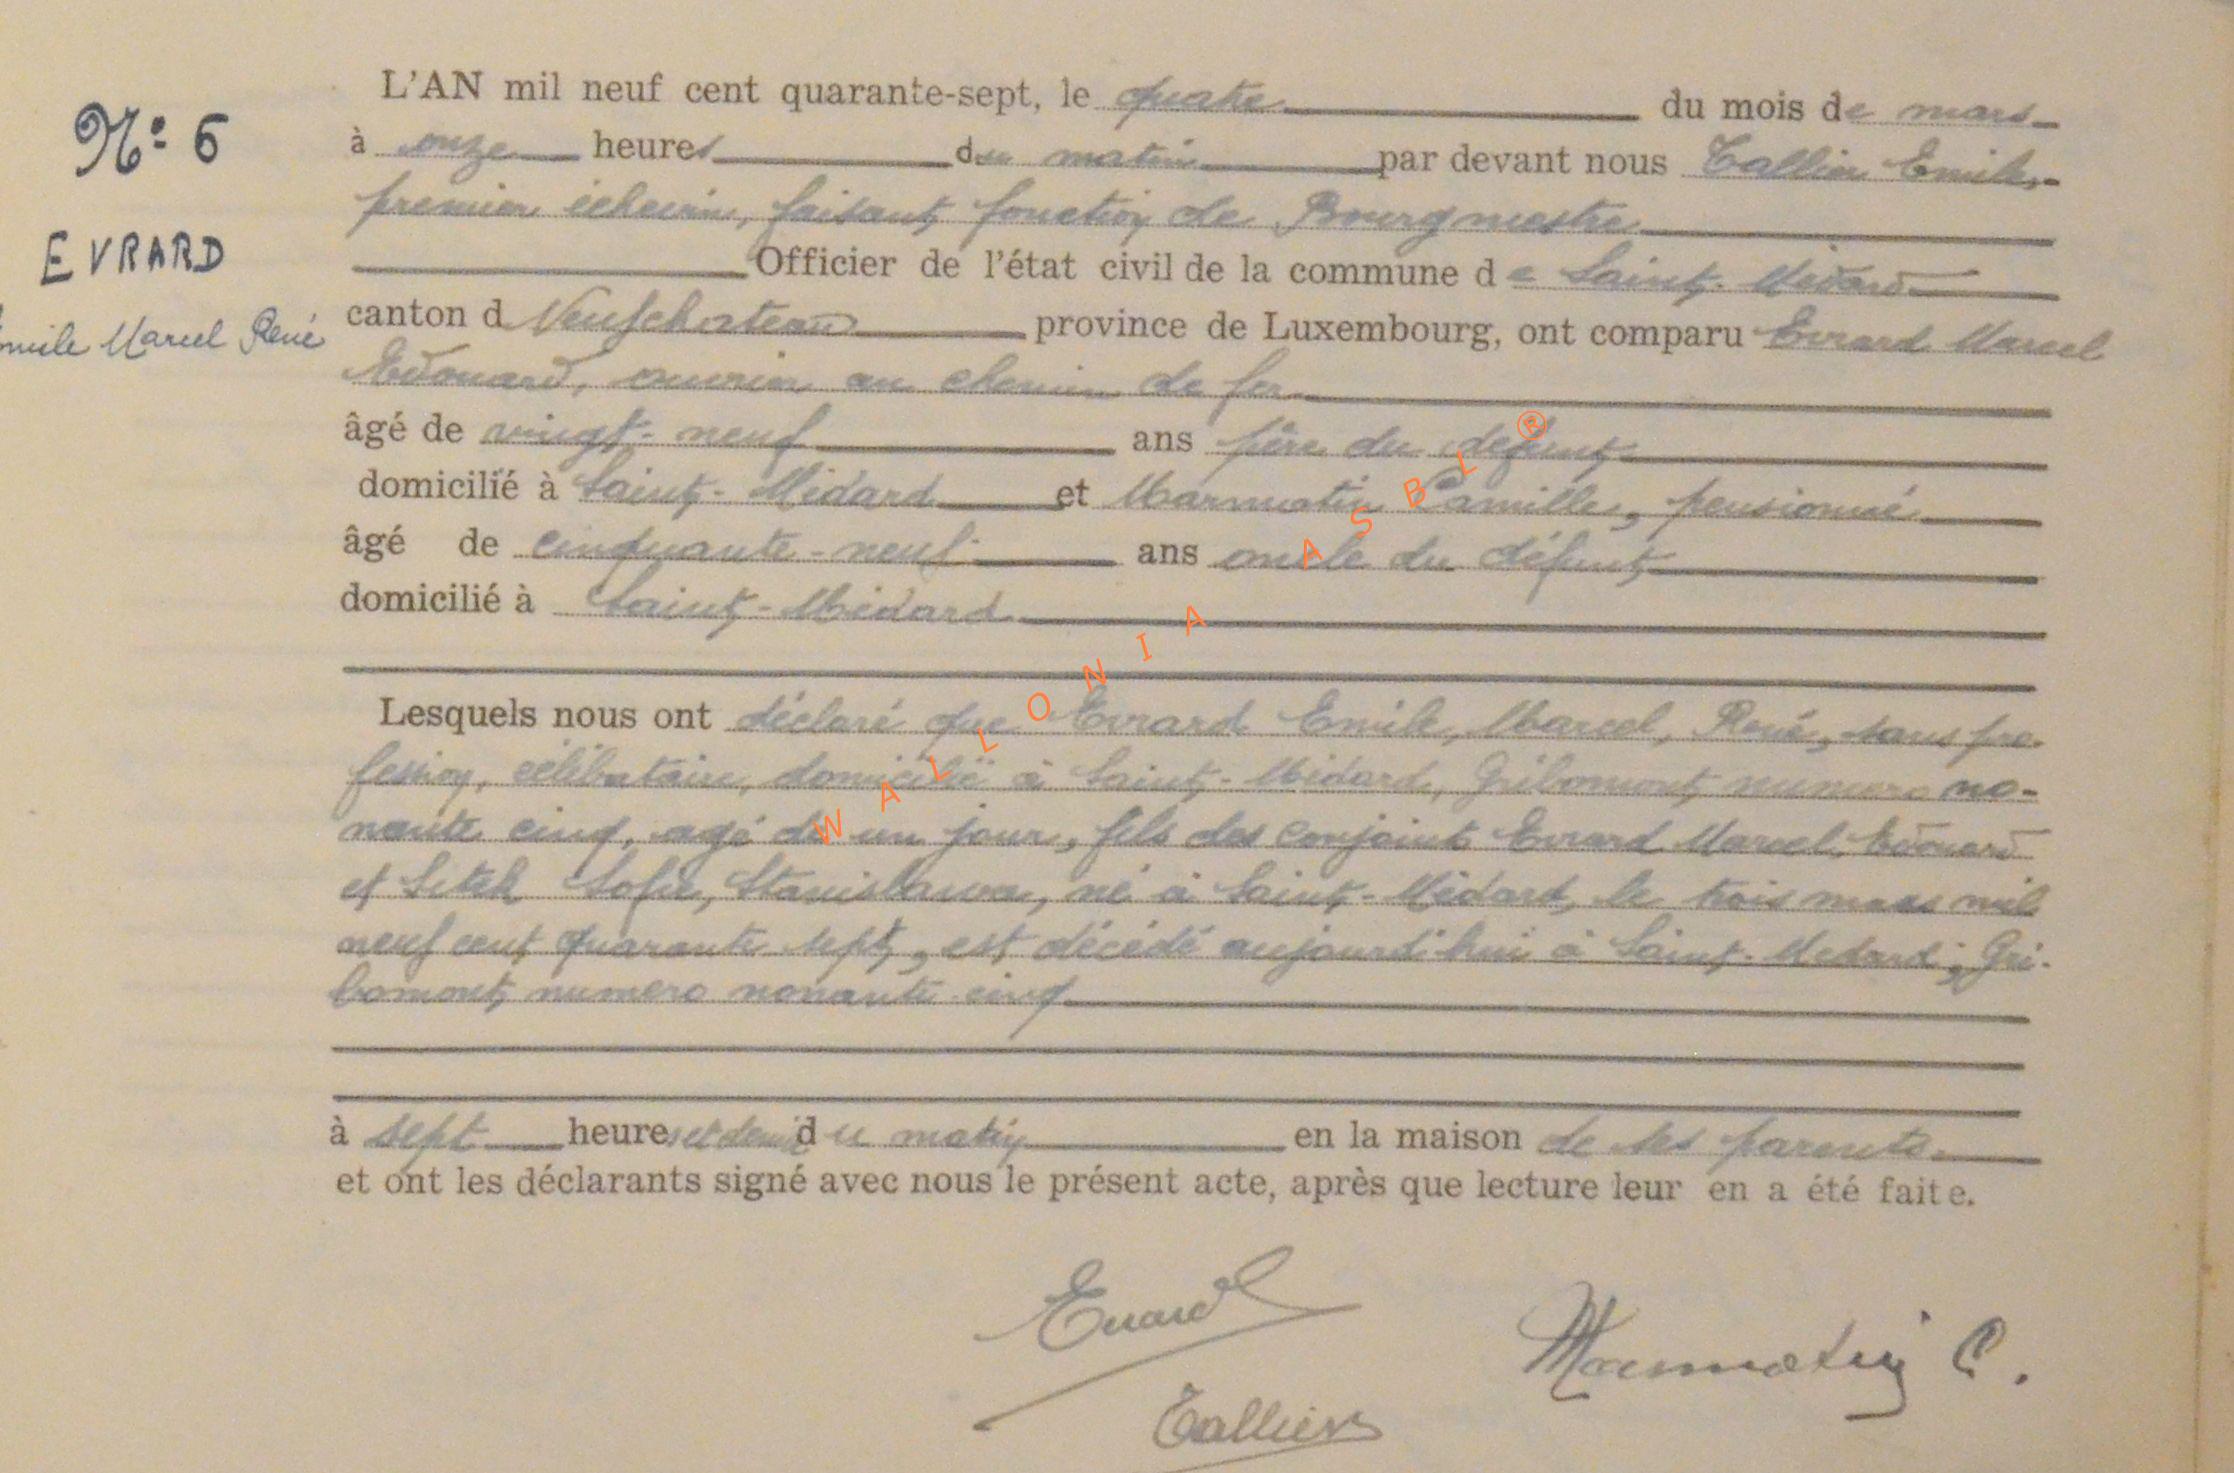 N° 6
EVRARD
Emile Marcel René
L'AN mil neuf cent quarante-sept, le quatre du mois de mars
à onze heures du matin par devant nous Tallier Emile,
premier échevin, faisant fonction de Bourgmestre
Officier de l'état civil de la commune de Saint-Médard
canton d Neufchateau province de Luxembourg, ont comparu Evrard Marcel
Edouard, ouvrier au chemin de fer
âgé de vingt-neuf ans père du défunt
domicilié à Saint-Médard et Marmotin Camille, pensionné
âgé de cinquante-neuf ans oncle du défunt
domicilié à Saint-Médard
Lesquels nous ont déclaré que Evrard Emile, Marcel, René, sans pro-
fession, célibataire, domicilié à Saint-Médard, Gribomont numero no-
nante cinq, agé de un jour, fils des conjoints Evrard Marcel, Edouard
et Sitek Sofie, Stanislawa, né à Saint-Médard, le trois mars mil
neuf cent quarante sept, est décédé aujourd'hui à Saint-Medard, Gri-
bomont numero nonante-cinq
à sept heures et demie du matin en la maison de ses parents.
et ont les déclarants signé avec nous le présent acte, après que lecture leur en a été faite.
Evrard
Marmotin C.
Tallier
WALLONIA ASBL ®